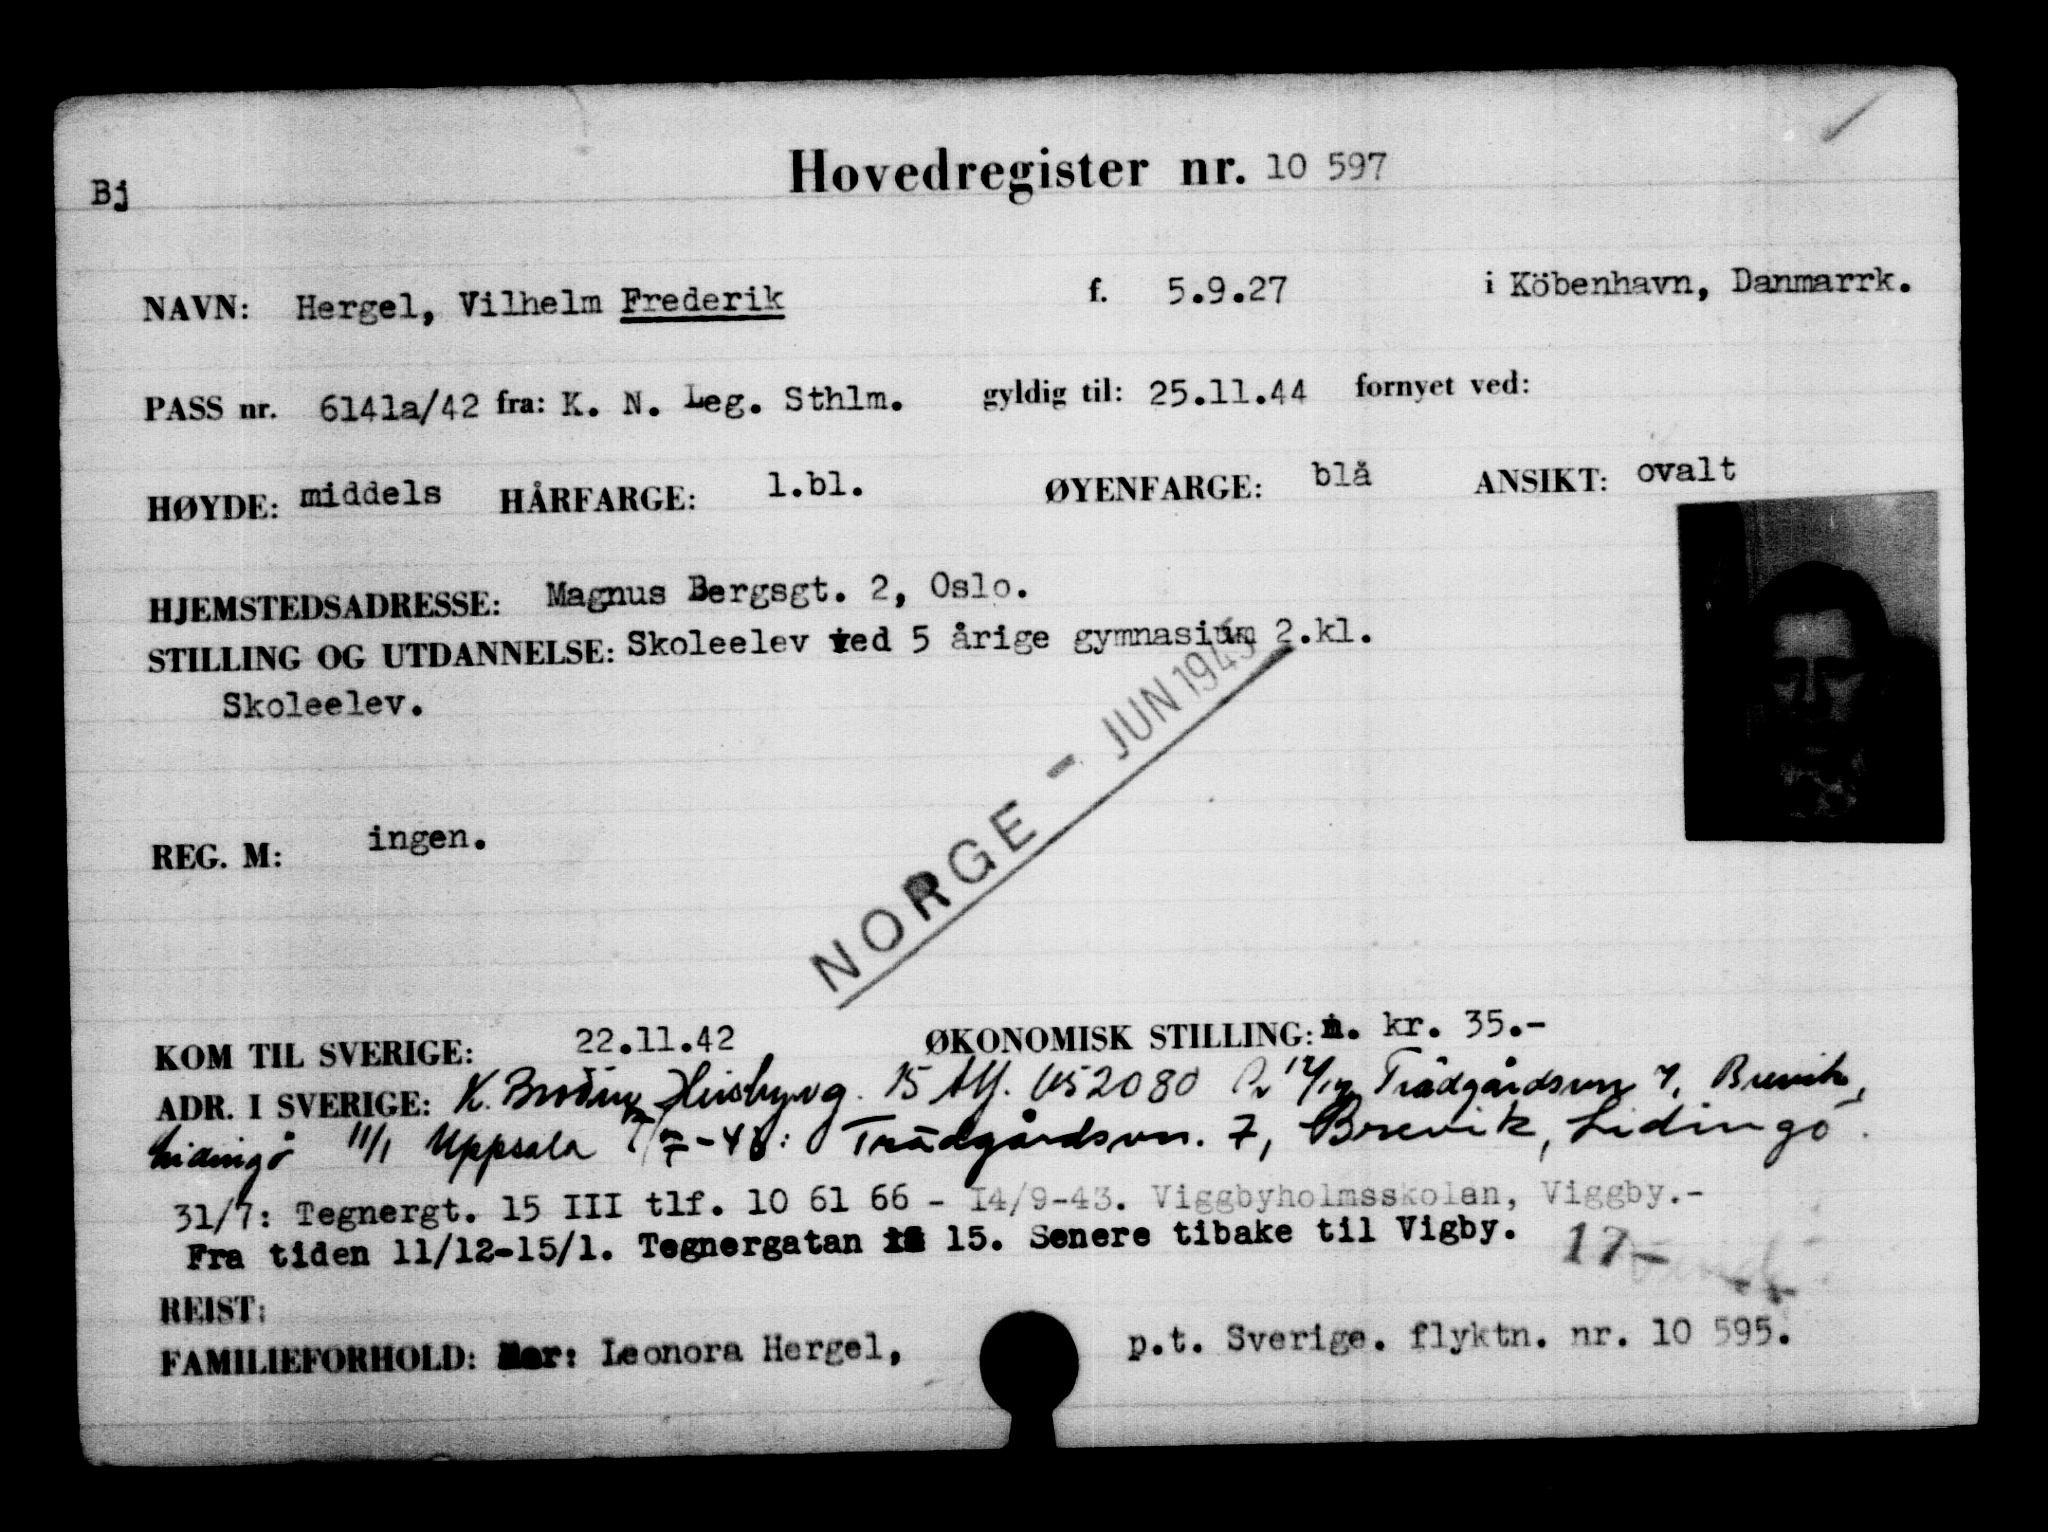 Hovedregister nr. 10 597
Bj
NAVN: Hergel, Vilhelm Frederik f. 5.9.27 i Köbenhavn, Danmarrk.
PASS nr. 6141a/42 fra: K. N. Leg. Sthlm. gyldig til: 25.11.44 fornyet ved:
HØYDE: middels HÅRFARGE: l.bl. ØYENFARGE: blå ANSIKT: ovalt
HJEMSTEDSADRESSE: Magnus Bergsgt. 2, Oslo.
STILLING OG UTDANNELSE: Skoleelev ved 5 årige gymnasium 2.kl.
Skoleelev.
NORGE - JUN 1945
REG. M: ingen.
KOM TIL SVERIGE: 22.11.42 ØKONOMISK STILLING: n. kr. 35.-
ADR. I SVERIGE: K. 15 052080 Trädgårdsvn 7, Brevik,
Lidingö 11/1 Uppsala Trädgårdsvn. 7, Brevik, Lidingö.
31/7: Tegnergt. 15 III tlf. 10 61 66 - 14/9-43. Viggbyholmsskolan, Viggby.-
Fra tiden 11/12-15/1. Tegnergatan 15. Senere tibake til Vigby. 17-
REIST:
FAMILIEFORHOLD: Mor: Leonora Hergel, p.t. Sverige. flyktn. nr. 10 595.